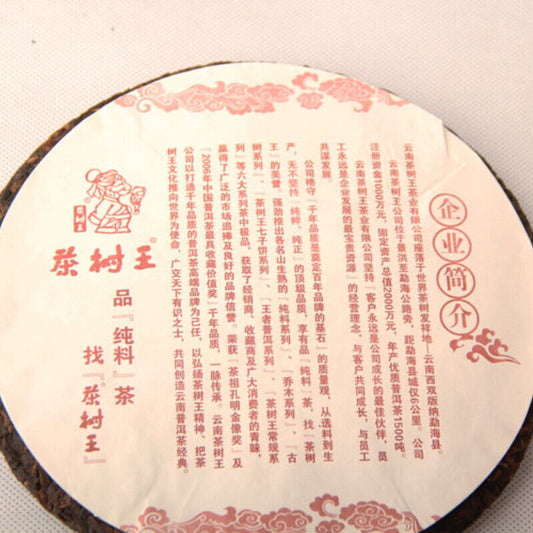 企业简介
云南茶树王茶业有限公司座落于世界茶树发祥地—云南西双版纳勐海县。
云南茶树王公司位于景洪至勐海公路旁，距勐海县城仅6公里。公司
注册资金1000万元，固定资产总值2000万元，年产优质普洱茶1500吨。
云南茶树王茶业有限公司坚持『客户永远是公司成长的最佳伙伴，员
工永远是企业发展的最宝贵资源』的经营理念，与客户共同成长，与员工
共谋发展。
公司恪守『千年品质是奠定百年品牌的基石』的质量观，从选料到生
产，无不坚持『纯粹、纯正』的顶级品质，享有品『纯料』茶，找『茶树
王』的美誉，强劲推出各名山生熟的『纯料系列』、『乔木系列』、『古
树系列』、『茶树王七子饼系列』、『王者普洱系列』、『茶树王常规系
列』等六大系列茶中极品。获取了经销商、收藏商及广大消费者的青睐，
赢得了广泛的市场追捧及良好的品牌信誉。荣获『茶祖孔明金像奖』及
『2006年中国普洱茶最具收藏价值奖』千年品质，一脉传承。云南茶树王
公司以打造千年品质的普洱茶高端品牌为己任，以弘扬茶树王精神、把茶
树王文化推向世界为使命，广交天下有识之士，共同创造云南普洱茶经典。
茶树王
品『纯料』茶
找『茶树王』